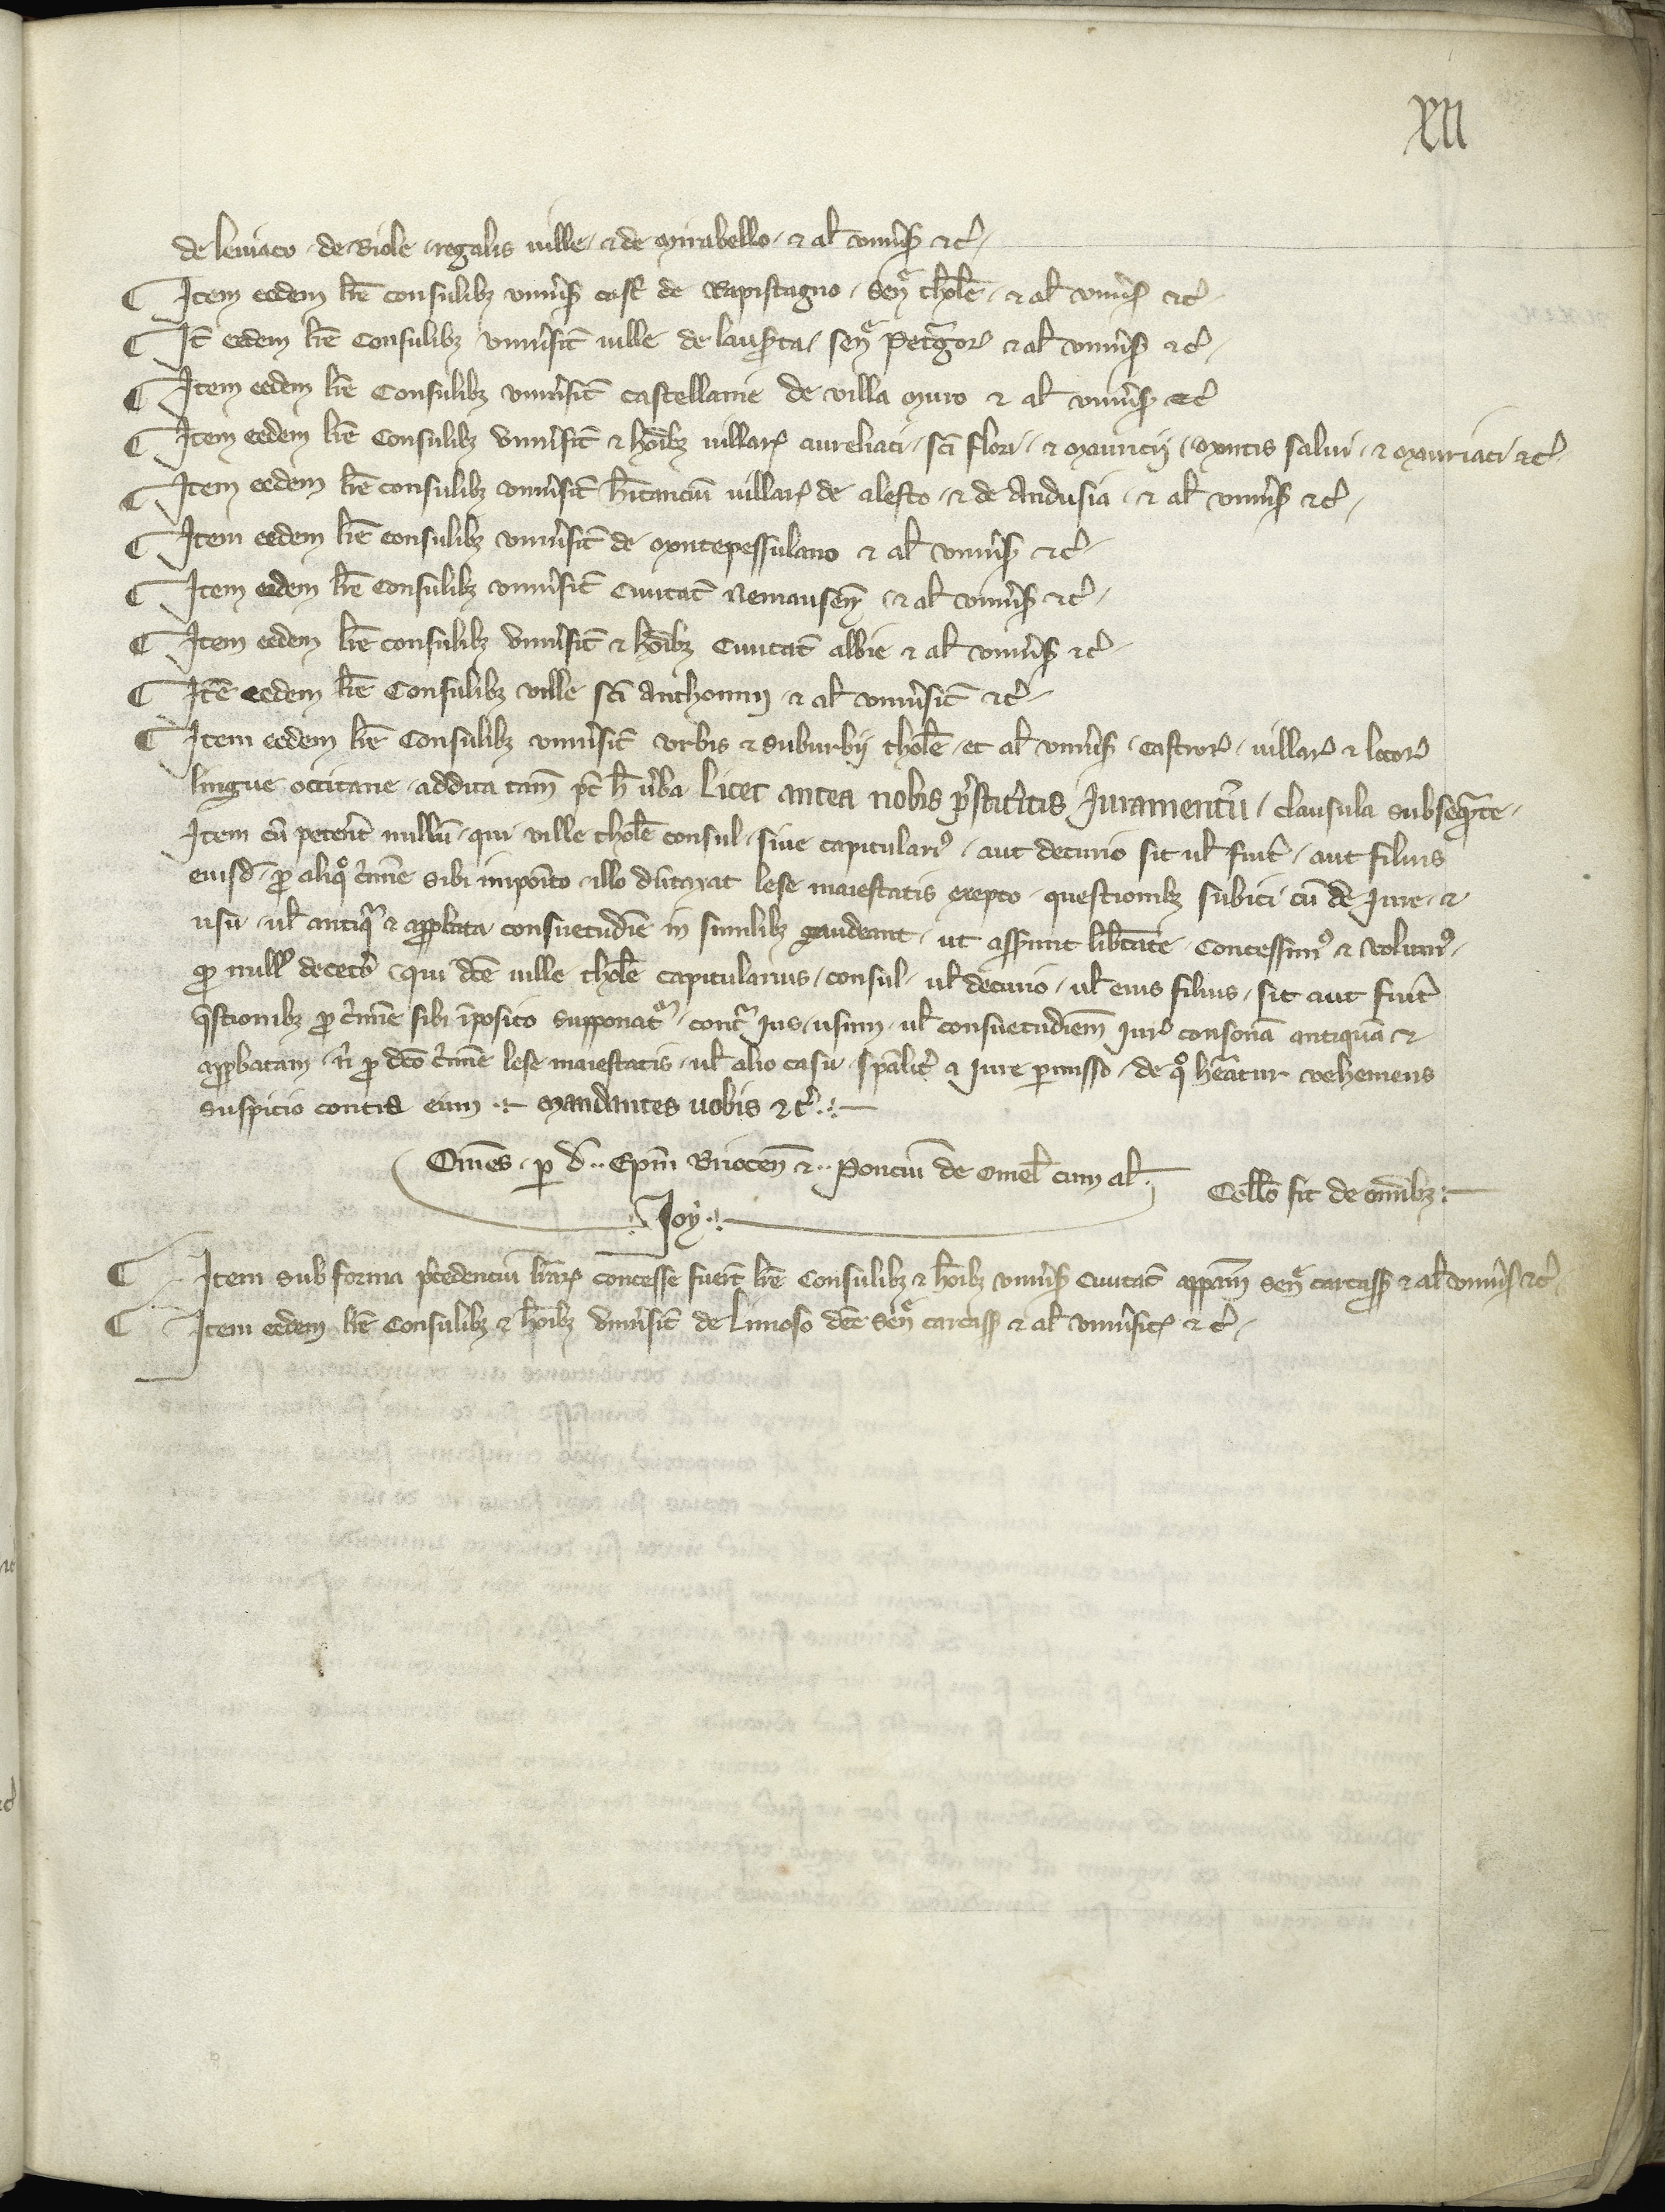 XII
de leniaco de Riole regalis uille et de Mirabello et al. vniũs etc
¶ Item eedem lr̃e consulibz vniũs cast̃ de Rapistagno señ tholõe et al. vniũs etc
¶ It̃ eedem lr̃e Consulibz vniũsit̃ uille de lauserta señ Petagor̃ et al. vniũs etc
¶ Item eedem lr̃e Consulibz vniũsit̃ castellanie de villa muro et al. vniũs etc
¶ Item eedem lr̃e Consulibz vniũsit̃ et hõibz uillar̃ aureliaci sc̃i flori et Mauricij Montis salui et Mauriaci etc
¶ Item eedem lr̃e consulibz vniũsit̃ hĩtanciũ uillar̃ de alesto et de Andusia et al. vniũs etc
¶ Item eedem lr̃e consulibz vniũsit̃ de Montepessulano et al. vniũs etc
¶ Item eedem lr̃e Consulibz vniũsit̃ Ciuitat̃ Nemauseñ et al. vniũs etc
¶ Item eedem lr̃e consulibz vniũsit̃ et hõibz Ciuitat̃ albie et al. vniũs etc
¶ Itẽ eedem lr̃e Consulibz ville sc̃i Anthonini et al. vniũsit̃ etc
¶ Item eedem lr̃e Consulibz vniũsit̃ vrbis et suburbij tholõe et al. vniũs castror̃ uillar̃ et locor̃
lingue occitane addita tam̃ pt̃ h̃ ũba Licet antea nobis p̃stitr̃itis Juramentũ clausula subseq̃nte
Item cũ petent̃ nullũ qui ville tholõe consul siue capitulari9 aut decurio sit ul̃ fuit̃ aut filius
eiusd̃ pro aliqo c̃mĩe sibi impoĩto illo dũtaxat lese maiestatis exepto questionibz subici cũ de Jure et
usu ul̃ antiq̃ et approbata consuetudĩe in similibz gaudeant ut asserunt lib̃tate Concessim9 et volum9
qd null9 deceto qui dc̃e uille tholõe capitularius consul ul̃ decurio ul̃ eius filius sit aut fuit̃
q̃stionibz pro c̃mĩe sibi ĩposito supponat̃ cont̃ Jus usum ul̃ consuetudiem̃ iuri consonã antiquã et
approbatam ñ pro dc̃o c̃mĩe lese maiestatis ul̃ alio casu spalit̃ a iure permisso de qo h̃eatur vehemens
suspicio contra eum Mandantes uobis etc
Om̃es per d̃ Ep̃m Briocen̄ et Ponciũ de Omel̃ cum al.
Joy
Coll̃o fit de om̃ibz
¶ Item sub forma p̃cedenciũ lr̃ar̃ concesse fuer̃t lr̃e Consulibz et hõibz vniũs Ciuitat̃ appam̃ señ carcass̃ et al. vniũs etc
¶ Item eedem lr̃e Consulibz et hõibz vniũsit̃ de Limoso dc̃e señ carcass̃ et al. vniũsit̃ etc